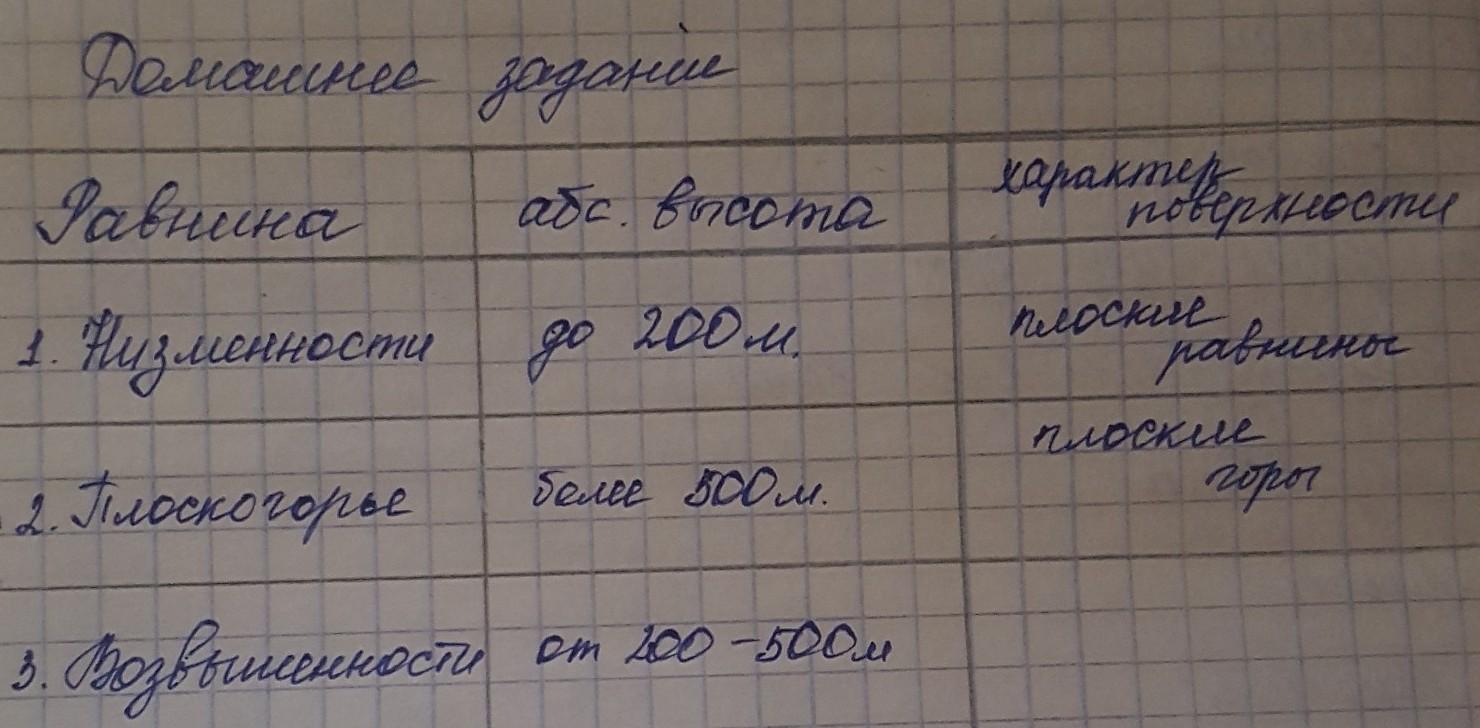 Домашнее задание
Равнина абс. высота характер
поверхности
1. Низменности до 200 м. плоские
равнины
2. Плоскогорье более 500 м. плоские
горы
3. Возвышенности от 200 – 500 м